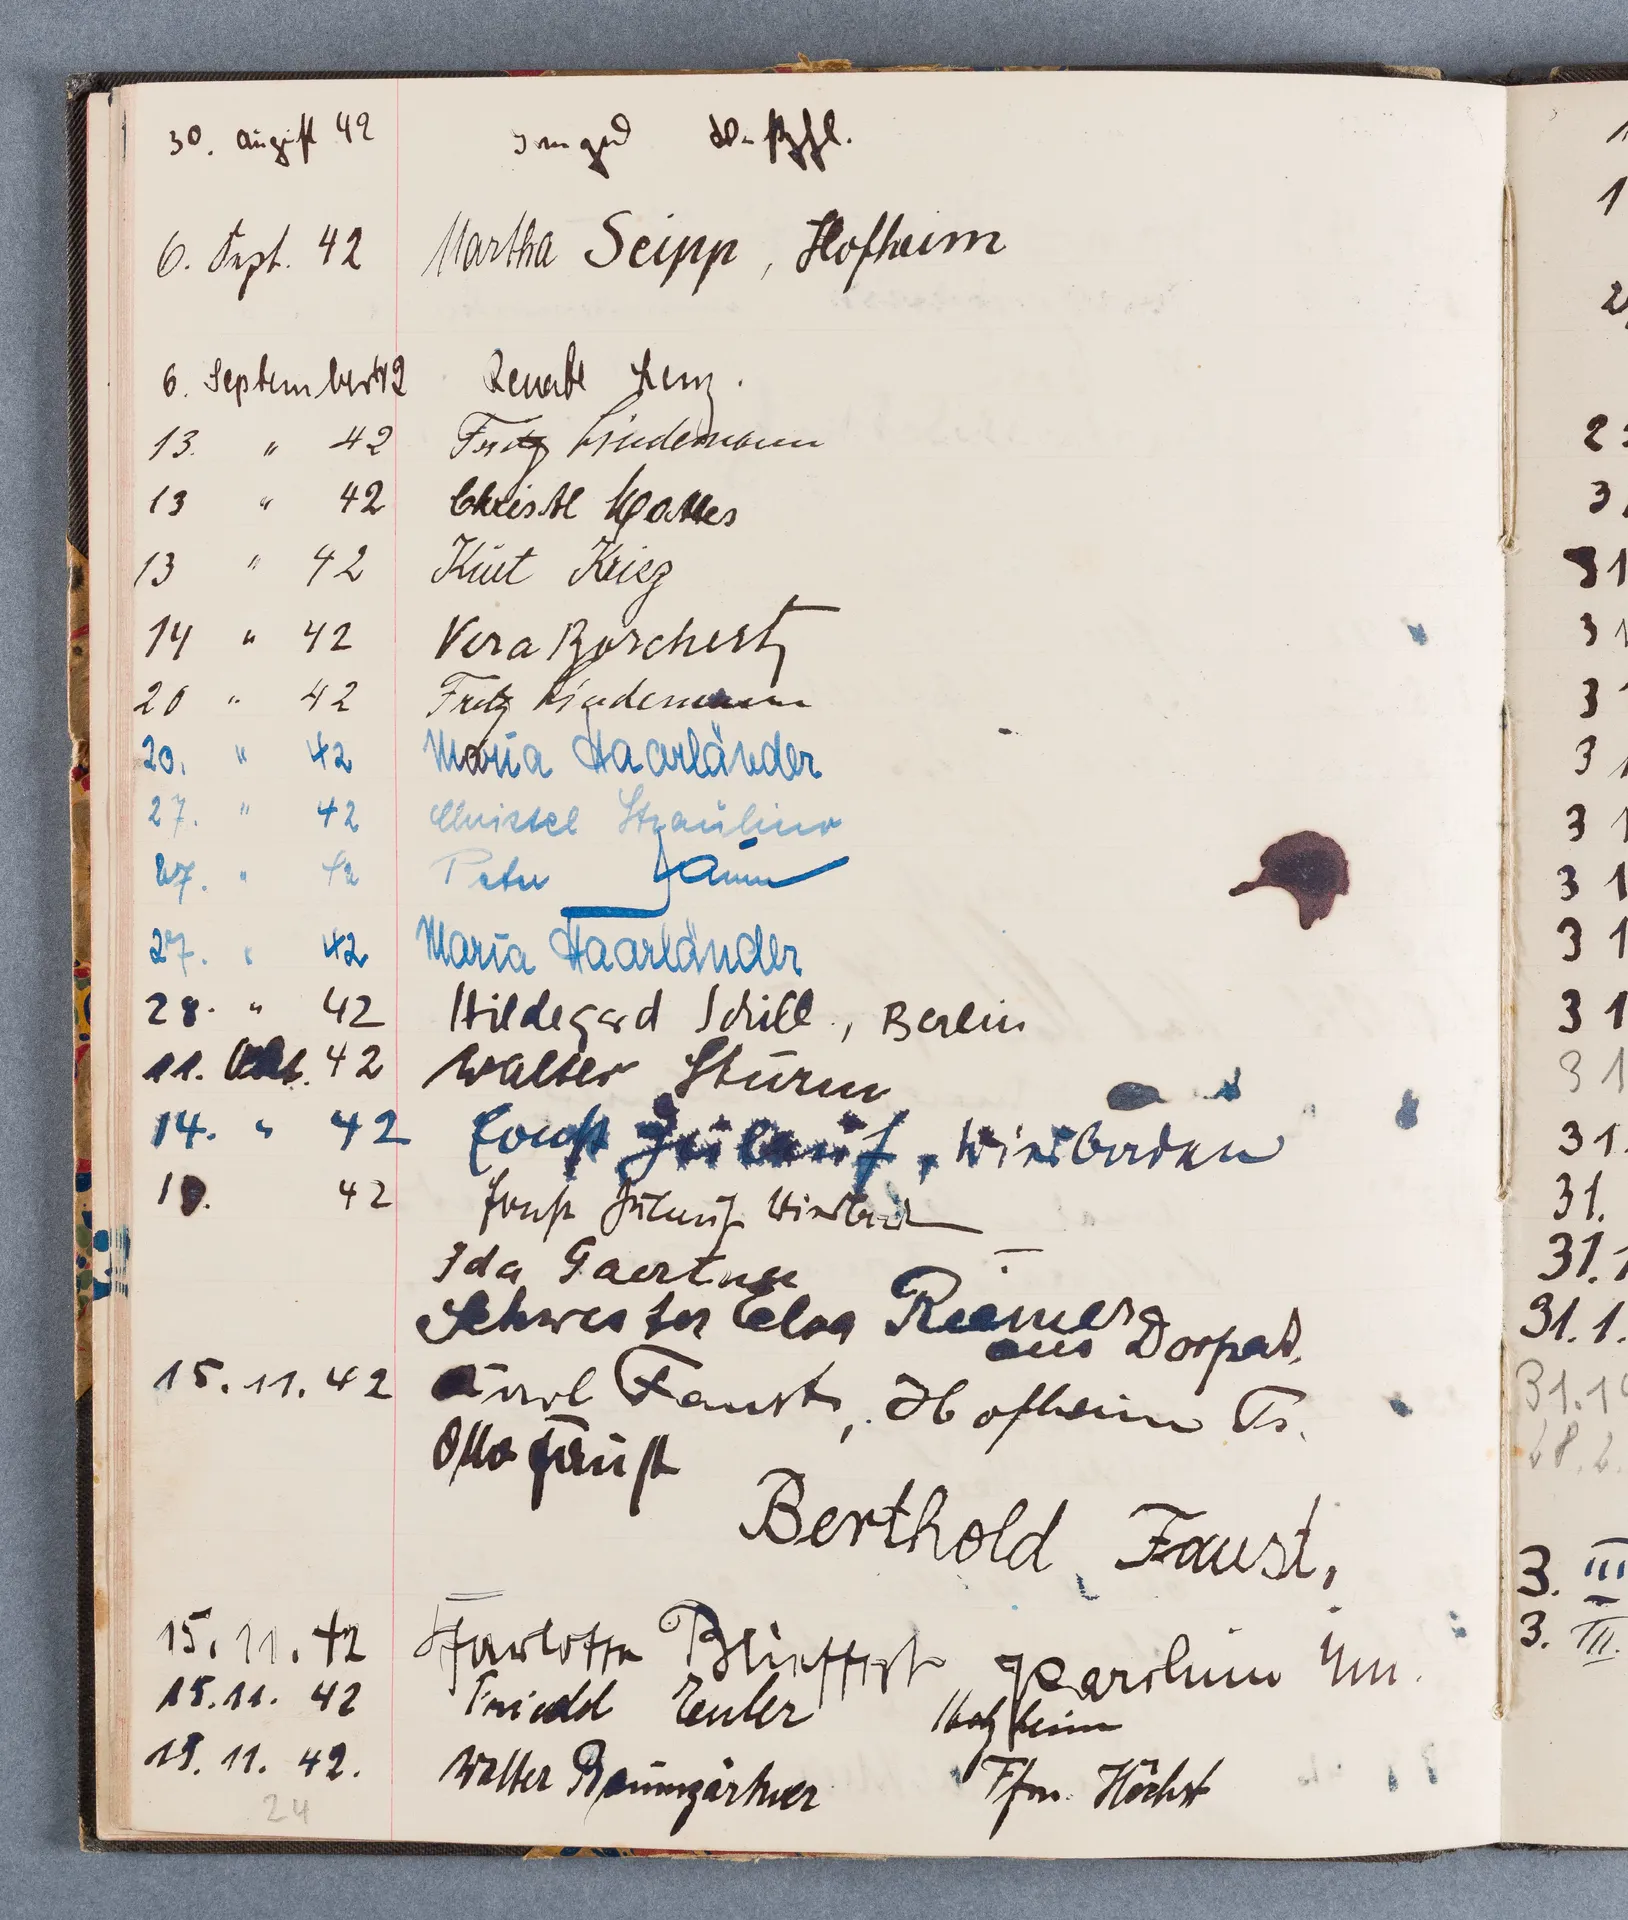 30. August 42
6. Sept. 42 Martha Seipp, Hofheim
6. September 42 Renate Lenz.
13. " 42 Fritz Lindemann
13 " 42 Christl
13 " 42 Kurt Krieg
14 " 42 Vera Borchert
20 " 42 Fritz Lindemann
20. " 42 Maria Haarländer
27. " 42 Christel Straulino
27. " 42 Peter
27. " 42 Maria Haarländer
28. " 42 Hildegard Schill, Berlin
11. Okt. 42 Walter Sturm
14. " 42 Ernst, Wiesbaden
42 Ernst
Ida Gaertner
Schwester Elsa Riemer
aus Dorpat.
15.11.42 Karl Faust, Hofheim Ts.
Otto Faust
Berthold Faust,
15.11.42 Charlotte
15.11.42 Friedel Euler
15.11.42. Walter Baumgärtner Ffm. Höchst
24
1
1
2
2
3
31
3 1
3
3 1
3 1
3 1
3 1
3 1
3 1
31.
31.
31.1
31.1.
31.1
28.2.
3. III
3. III.